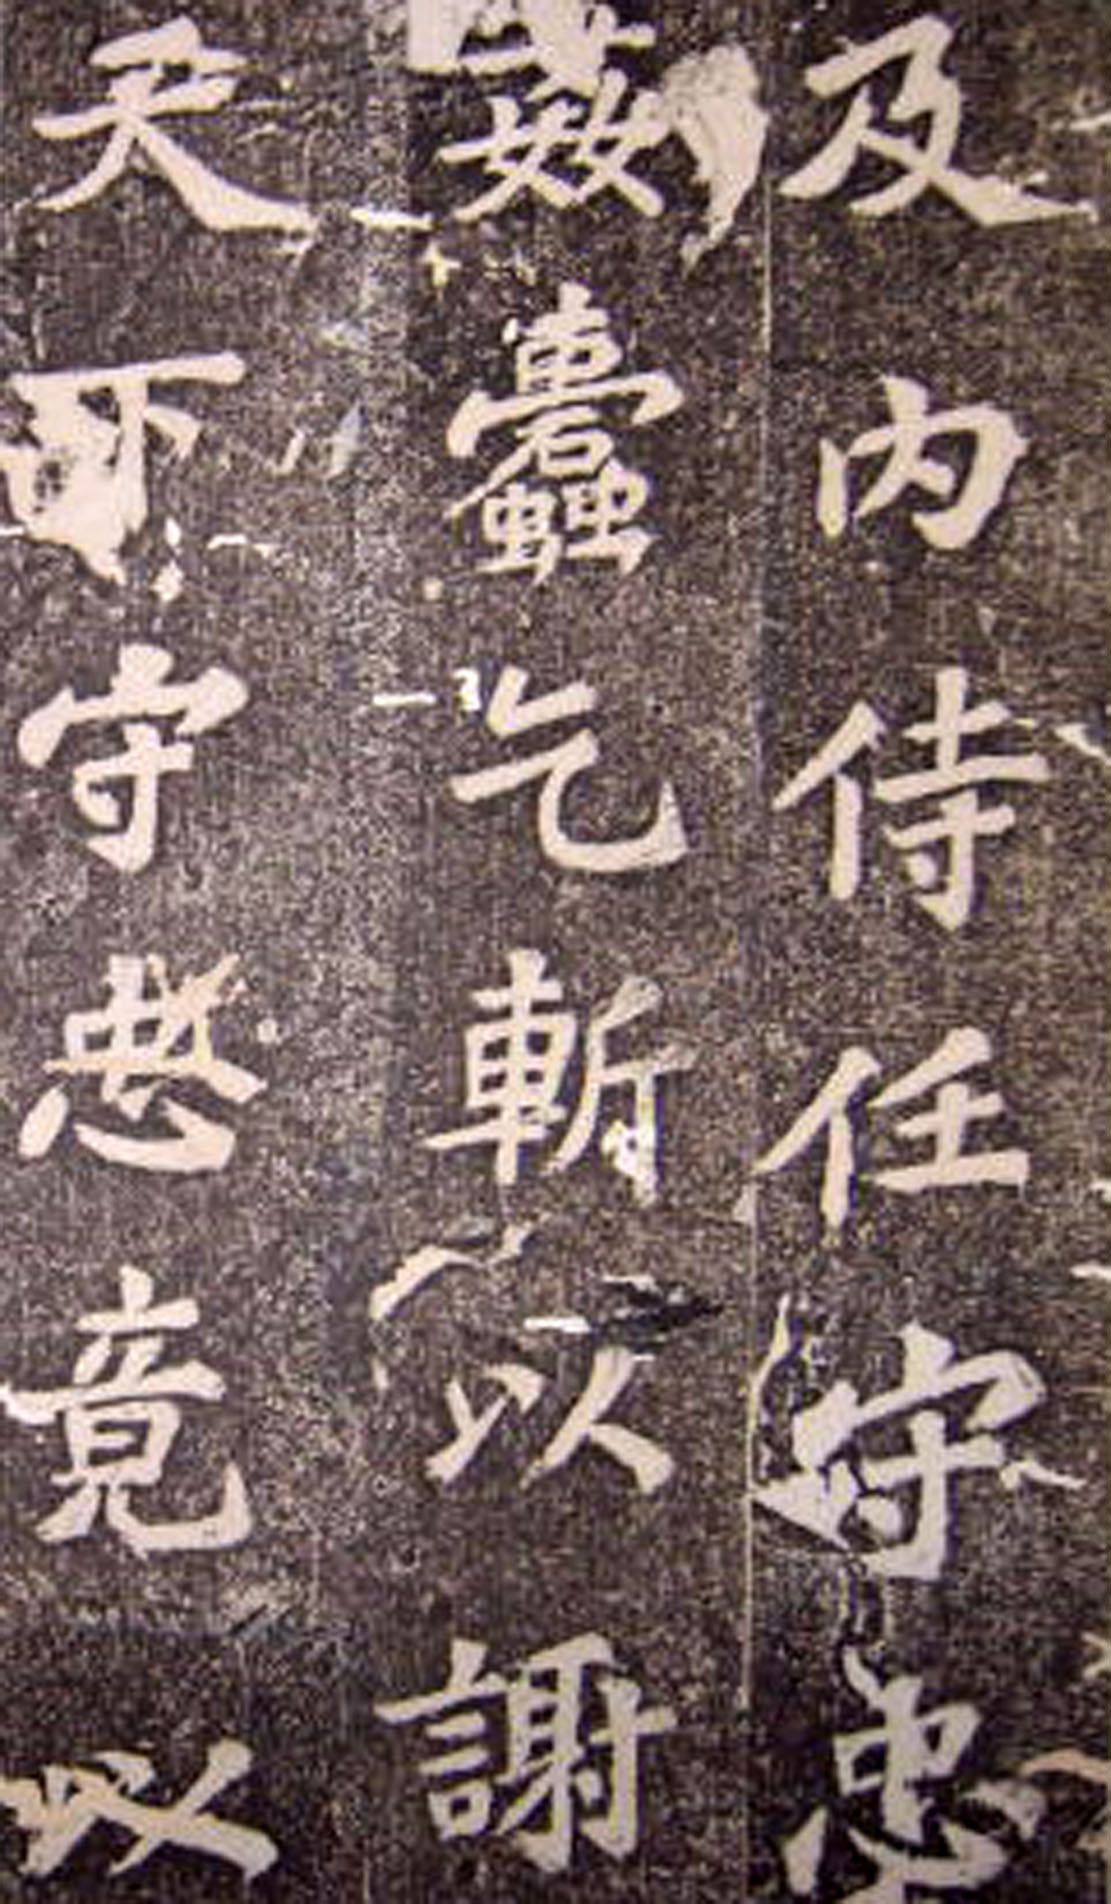 及內侍任守忠
姦蠹乞斬以謝
天下守忠竟以